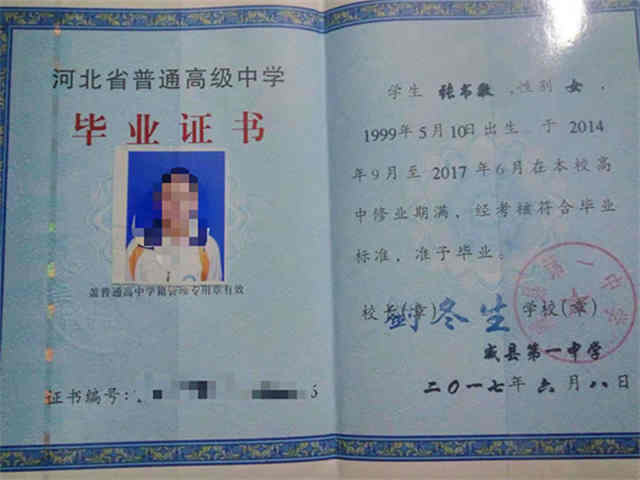 河北省普通高级中学
毕业证书
盖普通高中学籍管理专用章有效
证书编号:
5
学生 张书敏 ,性别 女 ,
1999年5月10日出生 于 2014
年9月至 2017 年6月在本校高
中修业期满,经考核符合毕业
标准,准予毕业。
校长(章) 冬生 学校(章)
威县第一中学
二〇一七年 六 月 八 日